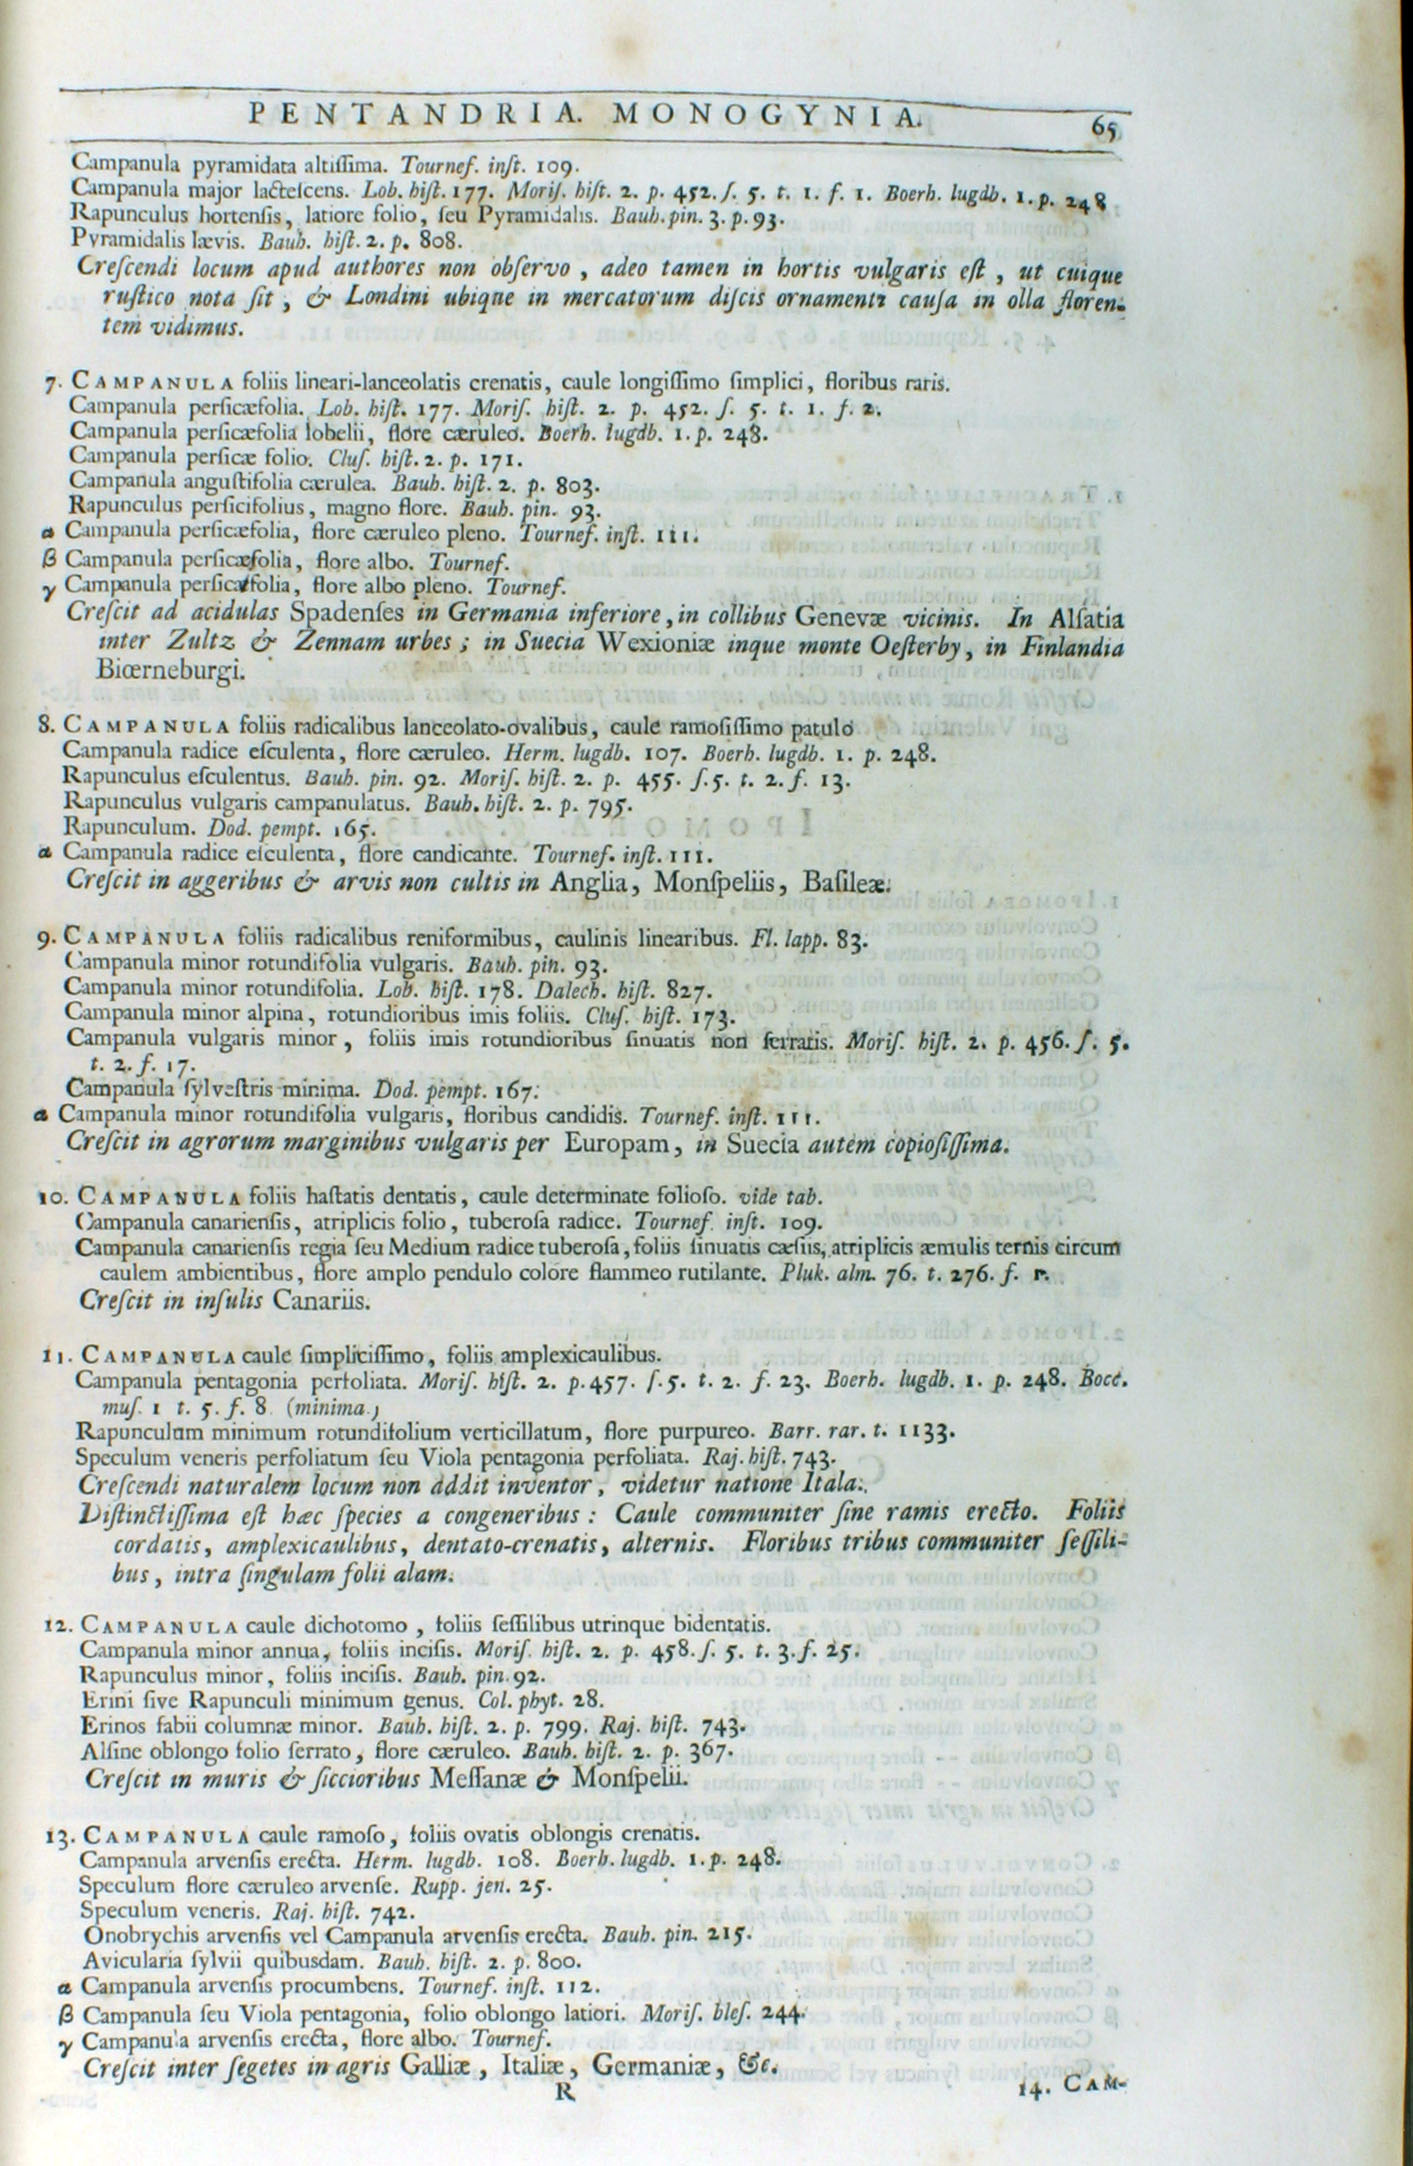 PENTANDRIA. MONOGYNIA. 65
Campanula pyramidata altiſſima. Tournef. inſt. 109.
Campanula major lacteſcens. Lob. hiſt. 177. Moriſ. hiſt. 2. p. 452. ſ. 5. t. 1. f. 1. Boerh. lugdb. 1. p. 248
Rapunculus hortenſis, latiore folio, ſeu Pyramidalis. Bauh. pin. 3. p. 93.
Pyramidalis lævis. Bauh. hiſt. 2. p. 808.
Creſcendi locum apud authores non obſervo, adeo tamen in hortis vulgaris eſt, ut cuique
ruſtico nota ſit, & Londini ubique in mercatorum diſcis ornamenti cauſa in olla floren-
tem vidimus.
7. CAMPANULA foliis lineari-lanceolatis crenatis, caule longiſſimo ſimplici, floribus raris.
Campanula perſicæfolia. Lob. hiſt. 177. Moriſ. hiſt. 2. p. 452. ſ. 5. t. 1. f. 2.
Campanula perſicæfolia lobelii, flore cæruleo. Boerh. lugdb. 1. p. 248.
Campanula perſicæ folio. Cluſ. hiſt. 2. p. 171.
Campanula anguſtifolia cærulea. Bauh. hiſt. 2. p. 803.
Rapunculus perſicifolius, magno flore. Bauh. pin. 93.
α Campanula perſicæfolia, flore cæruleo pleno. Tournef. inſt. 111.
β Campanula perſicæfolia, flore albo. Tournef.
γ Campanula perſicæfolia, flore albo pleno. Tournef.
Creſcit ad acidulas Spadenſes in Germania inferiore, in collibus Genevæ vicinis. In Alſatia
inter Zultz & Zennam urbes; in Suecia Wexioniæ inque monte Oeſterby, in Finlandia
Biœrneburgi.
8. CAMPANULA foliis radicalibus lanceolato-ovalibus, caule ramoſiſſimo patulo
Campanula radice eſculenta, flore cæruleo. Herm. lugdb. 107. Boerh. lugdb. 1. p. 248.
Rapunculus eſculentus. Bauh. pin. 92. Moriſ. hiſt. 2. p. 455. ſ. 5. t. 2. f. 13.
Rapunculus vulgaris campanulatus. Bauh. hiſt. 2. p. 795.
Rapunculum. Dod. pempt. 165.
α Campanula radice eſculenta, flore candicante. Tournef. inſt. 111.
Creſcit in aggeribus & arvis non cultis in Anglia, Monſpeliis, Baſileæ.
9. CAMPANULA foliis radicalibus reniformibus, caulinis linearibus. Fl. lapp. 83.
Campanula minor rotundifolia vulgaris. Bauh. pin. 93.
Campanula minor rotundifolia. Lob. hiſt. 178. Dalech. hiſt. 827.
Campanula minor alpina, rotundioribus imis foliis. Cluſ. hiſt. 173.
Campanula vulgaris minor, foliis imis rotundioribus ſinuatis non ſerratis. Moriſ. hiſt. 2. p. 456. ſ. 5.
t. 2. f. 17.
Campanula ſylveſtris minima. Dod. pempt. 167.
α Campanula minor rotundifolia vulgaris, floribus candidis. Tournef. inſt. 111.
Creſcit in agrorum marginibus vulgaris per Europam, in Suecia autem copioſiſſima.
10. CAMPANULA foliis haſtatis dentatis, caule determinate folioſo. vide tab.
Campanula canarienſis, atriplicis folio, tuberoſa radice. Tournef. inſt. 109.
Campanula canarienſis regia ſeu Medium radice tuberoſa, foliis ſinuatis cæſiis, atriplicis æmulis ternis circum
caulem ambientibus, flore amplo pendulo colore flammeo rutilante. Pluk. alm. 76. t. 276. f. 1.
Creſcit in inſulis Canariis.
11. CAMPANULA caule ſimpliciſſimo, foliis amplexicaulibus.
Campanula pentagonia perfoliata. Moriſ. hiſt. 2. p. 457. ſ. 5. t. 2. f. 23. Boerh. lugdb. 1. p. 248. Bocc.
muſ. 1 t. 5. f. 8 (minima.)
Rapunculum minimum rotundifolium verticillatum, flore purpureo. Barr. rar. t. 1133.
Speculum veneris perfoliatum ſeu Viola pentagonia perfoliata. Raj. hiſt. 743.
Creſcendi naturalem locum non addit inventor, videtur natione Itala.
Diſtinctiſſima eſt hæc ſpecies a congeneribus: Caule communiter ſine ramis erecto. Foliis
cordatis, amplexicaulibus, dentato-crenatis, alternis. Floribus tribus communiter ſeſſili-
bus, intra ſingulam folii alam.
12. CAMPANULA caule dichotomo, foliis ſeſſilibus utrinque bidentatis.
Campanula minor annua, foliis inciſis. Moriſ. hiſt. 2. p. 458. ſ. 5. t. 3. f. 25.
Rapunculus minor, foliis inciſis. Bauh. pin. 92.
Erini ſive Rapunculi minimum genus. Col. phyt. 28.
Erinos fabii columnæ minor. Bauh. hiſt. 2. p. 799. Raj. hiſt. 743.
Alſine oblongo folio ſerrato, flore cæruleo. Bauh. hiſt. 2. p. 367.
Creſcit in muris & ſiccioribus Meſſanæ & Monſpelii.
13. CAMPANULA caule ramoſo, foliis ovatis oblongis crenatis.
Campanula arvenſis erecta. Herm. lugdb. 108. Boerh. lugdb. 1. p. 248.
Speculum flore cæruleo arvenſe. Rupp. jen. 25.
Speculum veneris. Raj. hiſt. 742.
Onobrychis arvenſis vel Campanula arvenſis erecta. Bauh. pin. 215.
Avicularia ſylvii quibusdam. Bauh. hiſt. 2. p. 800.
α Campanula arvenſis procumbens. Tournef. inſt. 112.
β Campanula ſeu Viola pentagonia, folio oblongo latiori. Moriſ. bleſ. 244.
γ Campanula arvenſis erecta, flore albo. Tournef.
Creſcit inter ſegetes in agris Galliæ, Italiæ, Germaniæ, &c.
R 14. CAM-